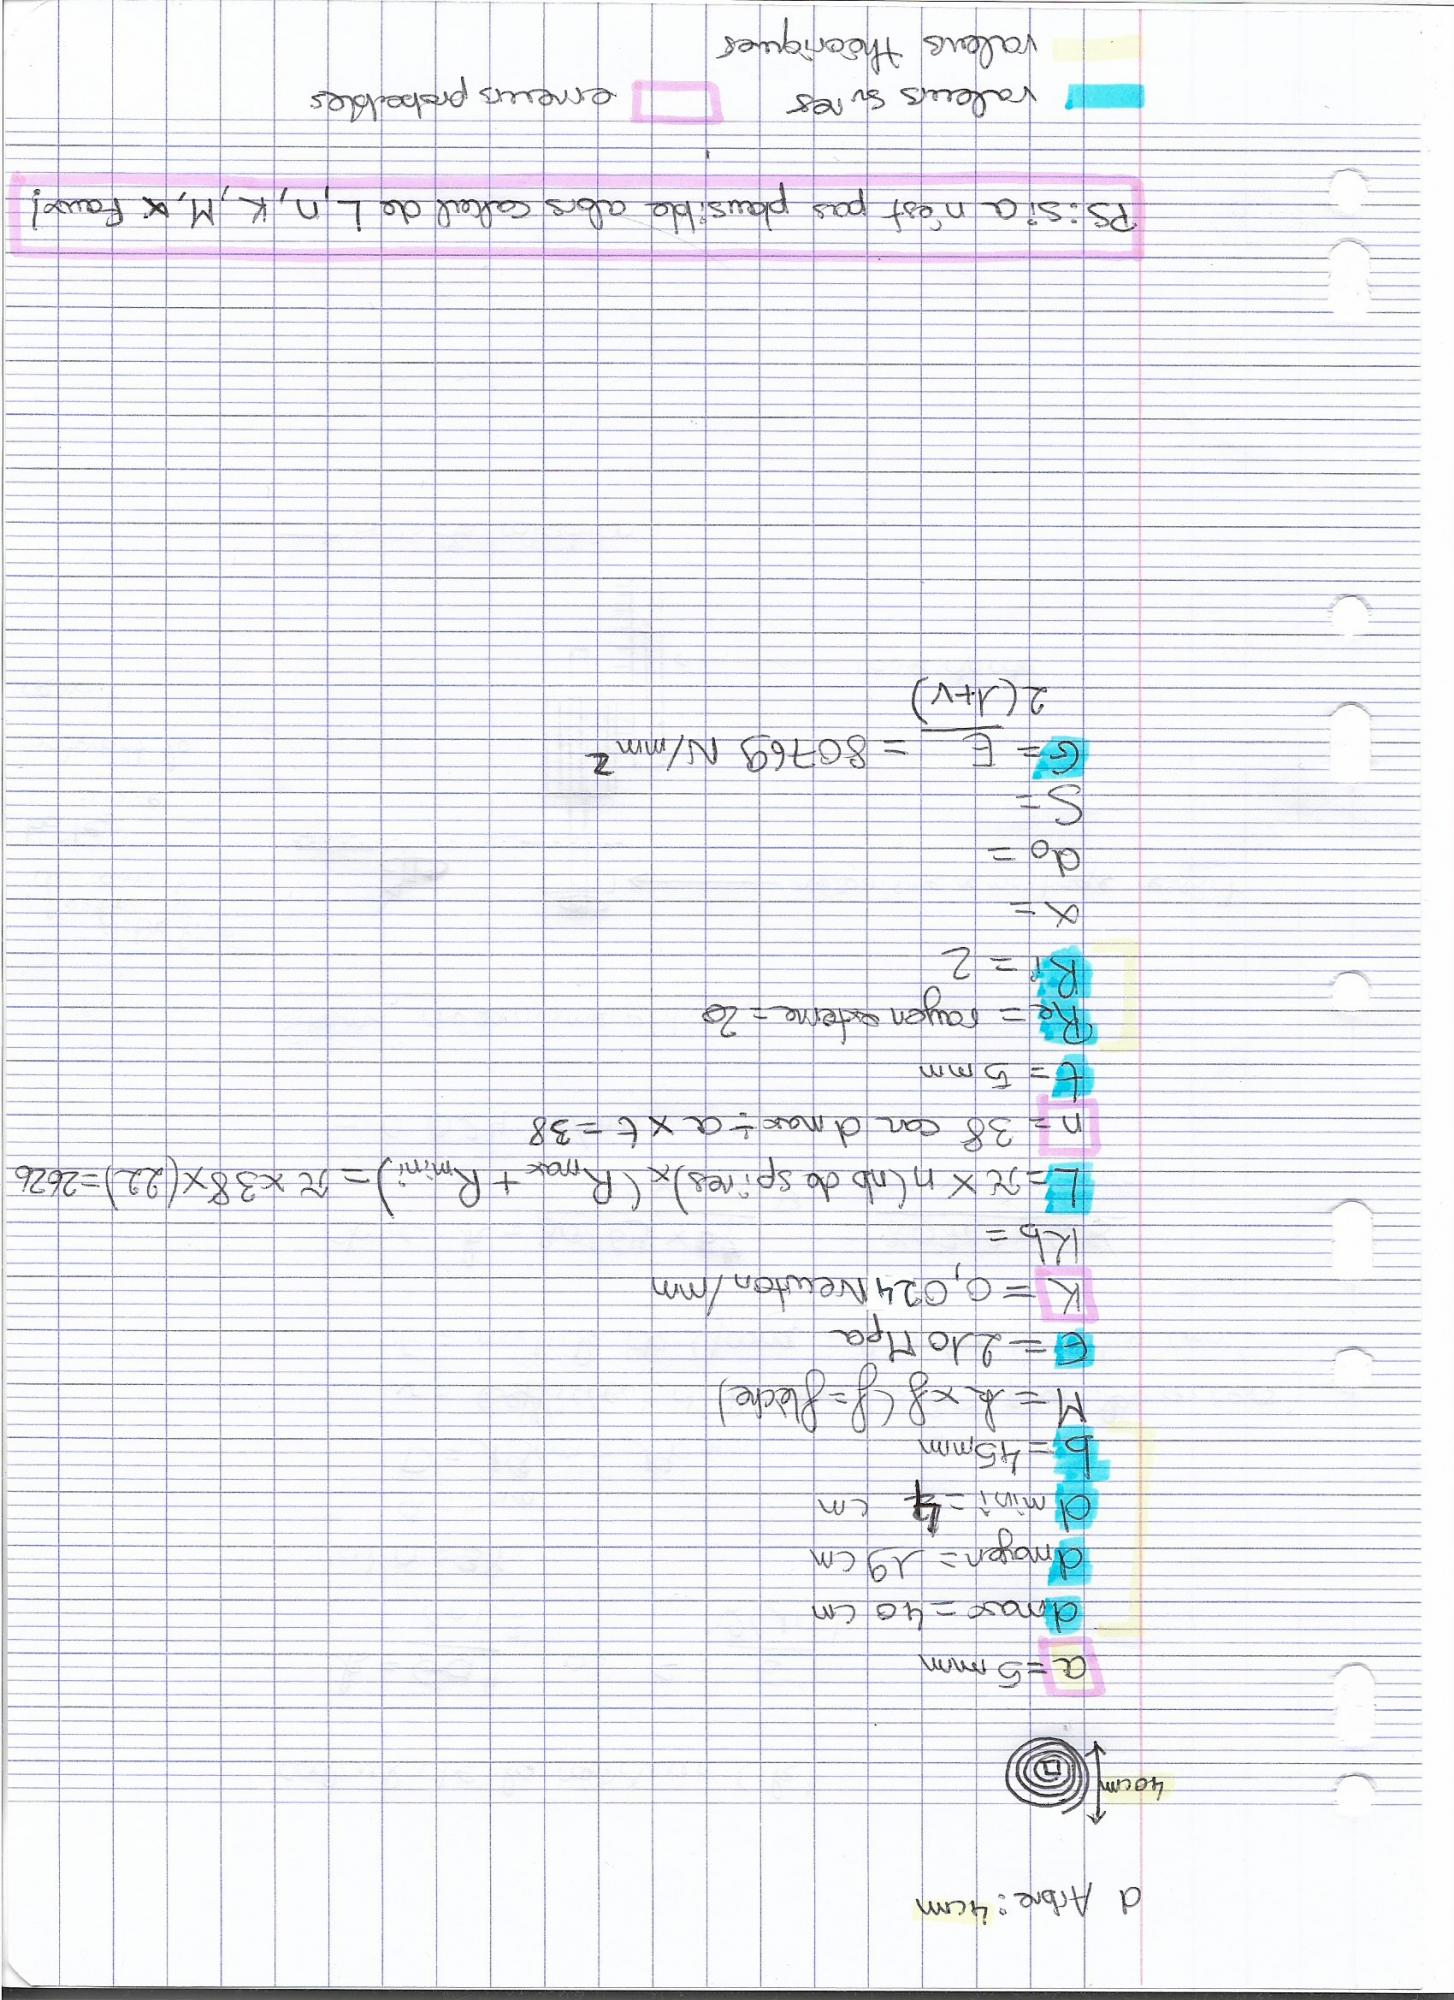 d Arbre : 4cm
40cm
a = 5 mm
dmax = 40 cm
dmoyen = 19 cm
d mini = 4 cm
b = 45mm
M = k x f (f = flèche)
E = 210 Mpa
K = 0,024 Newton/mm
Kb =
L = π x n (nb de spires) x (Rmax + Rmini) = π x 38 x (22) = 2626
n = 38 car dmax ÷ a x t = 38
t = 5 mm
Re = rayon externe = 20
Ri = 2
α =
do =
S =
G = E = 80769 N/mm²
2(1+v)
PS : si a n'est pas plausible alors calcul de L, n, K, M, α Faux!
valeurs sûres erreurs probables
valeurs théoriques